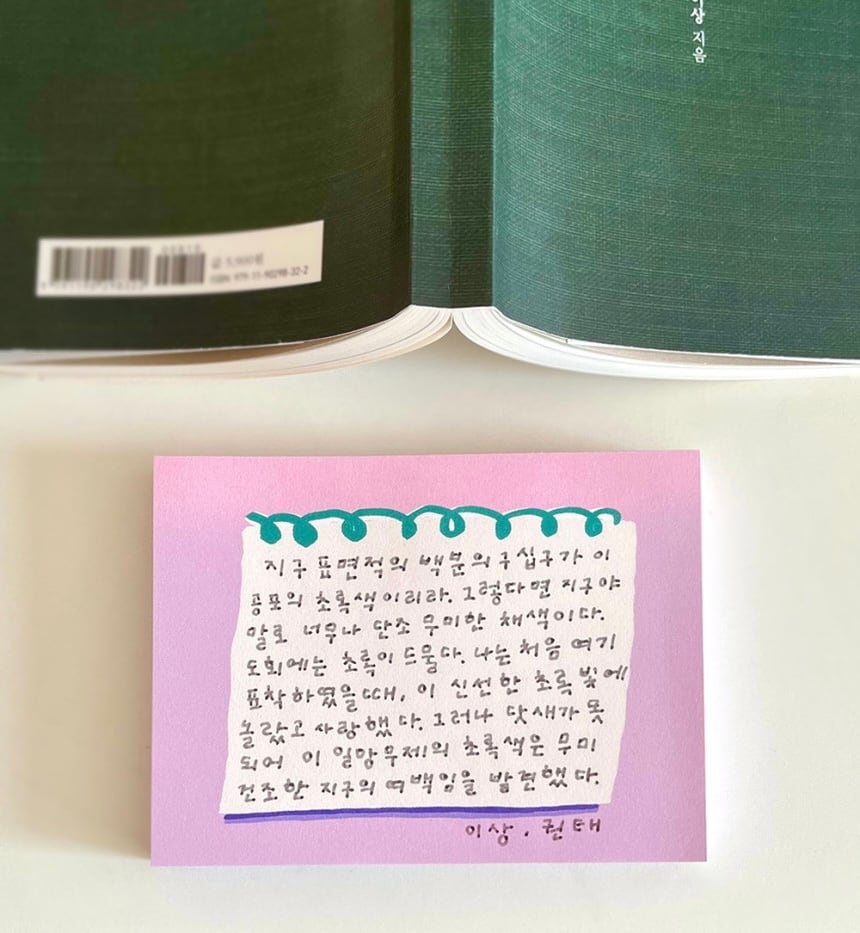 이상 지음
값 5,900원
ISBN 979-11-90298-32-2
지구 표면적의 백분의 구십구가 이
공포의 초록색이리라. 그렇다면 지구야
말로 너무나 단조 무미한 채색이다.
도회에는 초록이 드물다. 나는 처음 여기
표착하였을 때, 이 신선한 초록 빛에
놀랐고 사랑했다. 그러나 닷새가 못
되어 이 일망무제의 초록색은 무미
건조한 지구의 여백임을 발견했다.
이상, 권태